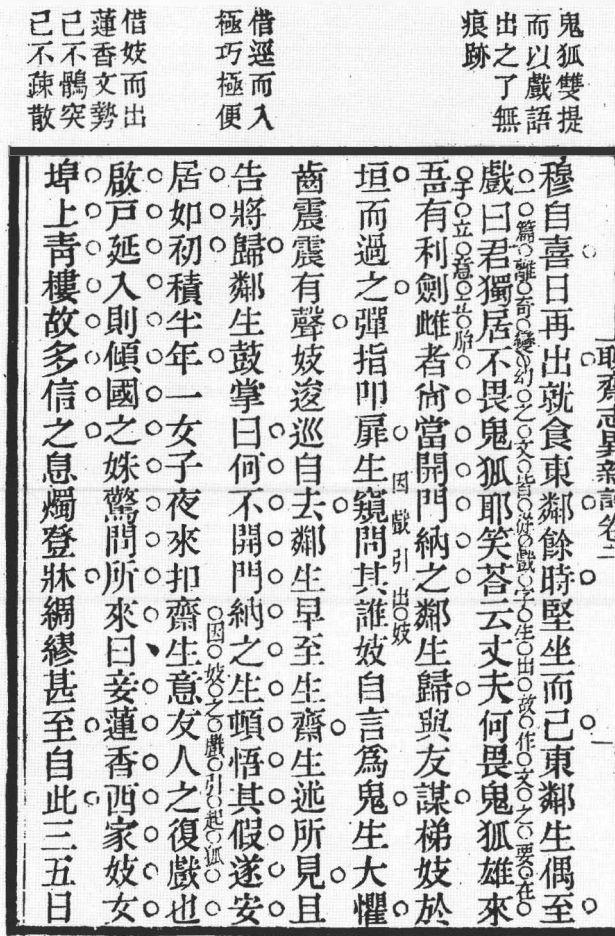 鬼狐雙提
而以戲語
出之了無
痕跡
借逕而入
極巧極便
借妓而出
蓮香文勢
己不鶻突
己不疎散
聊齋志異新評卷二
穆自喜日再出就食東鄰餘時堅坐而己東鄰生偶至
一篇離奇變幻之文皆從戲字生出故作文之要在
戲曰君獨居不畏鬼狐耶笑荅云丈夫何畏鬼狐雄來
于立意立胎
吾有利劍雌者尙當開門納之鄰生歸與友謀梯妓於
因戲引出妓
垣而過之彈指叩扉生窺問其誰妓自言爲鬼生大懼
齒震震有聲妓逡巡自去鄰生早至生齋生述所見且
告將歸鄰生鼓掌曰何不開門納之生頓悟其假遂安
因妓之戲引起狐
居如初積半年一女子夜來扣齋生意友人之復戲也
啟戶延入則傾國之姝驚問所來曰妾蓮香西家妓女
埠上靑樓故多信之息燭登牀綢繆甚至自此三五日